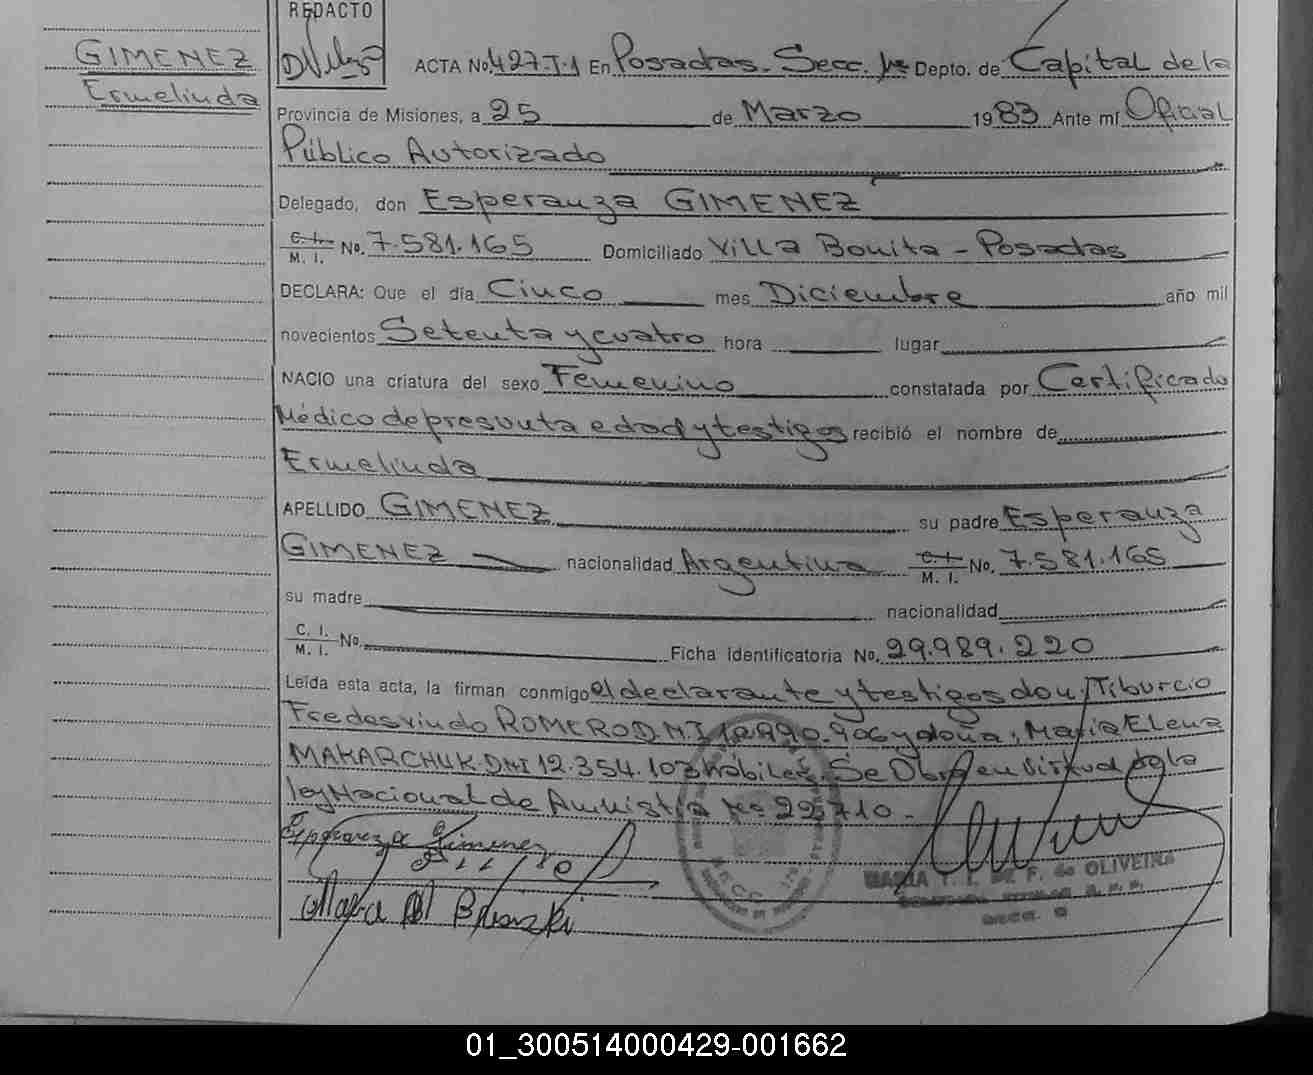 REDACTO
GIMENEZ
Ermelinda
ACTA No. 427-T-1 En Posadas. Secc. 1re Depto. de Capital de la
Provincia de Misiones, a 25 de Marzo 1983 Ante mí Oficial
Público Autorizado
Delegado, don Esperanza GIMENEZ
C. I. M. I. No. 7.581.165 Domiciliado Villa Bonita - Posadas
DECLARA: Que el día Cinco mes Diciembre año mil
novecientos Setenta y cuatro hora lugar
NACIO una criatura del sexo Femenino constatada por Certificado
Médico de presunta edad y testigos recibió el nombre de
Ermelinda
APELLIDO GIMENEZ su padre Esperanza
GIMENEZ nacionalidad Argentina C. I. M. I. No. 7.581.165
su madre nacionalidad
C. I. M. I. No. Ficha identificatoria No. 29.989.220
Leída esta acta, la firman conmigo el declarante y testigos don Tiburcio
Fredesvindo ROMERO D.N.I. 10.990.906 y doña: María Elena
MAKARCHUK. DNI 12.354.103 hábiles. Se Obra en Virtud de la
ley Nacional de Amnistía No 22.710.-
Esperanza Gimenez
MARIA T. I. DE F. de OLIVEIRA
SECC.
01_300514000429-001662